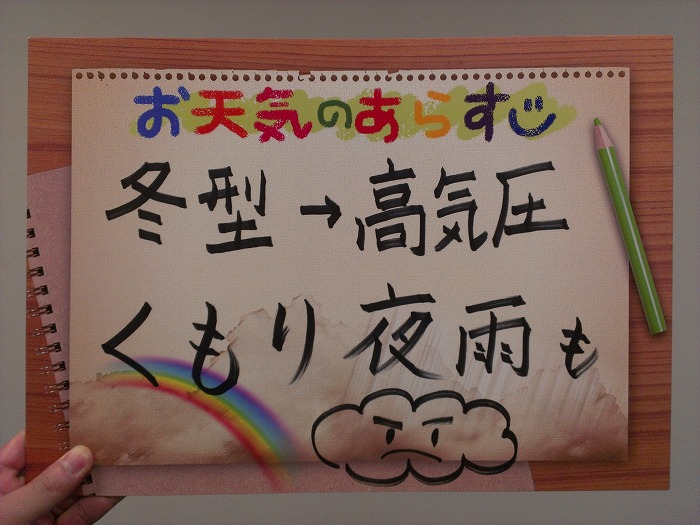 お天気のあらすじ
冬型→高気圧
くもり 夜雨も